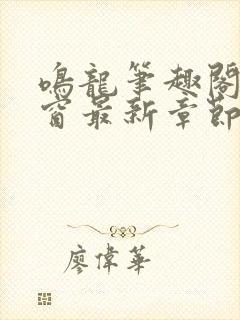 鳴龍筆趣閣
窗最新章節
廖偉華